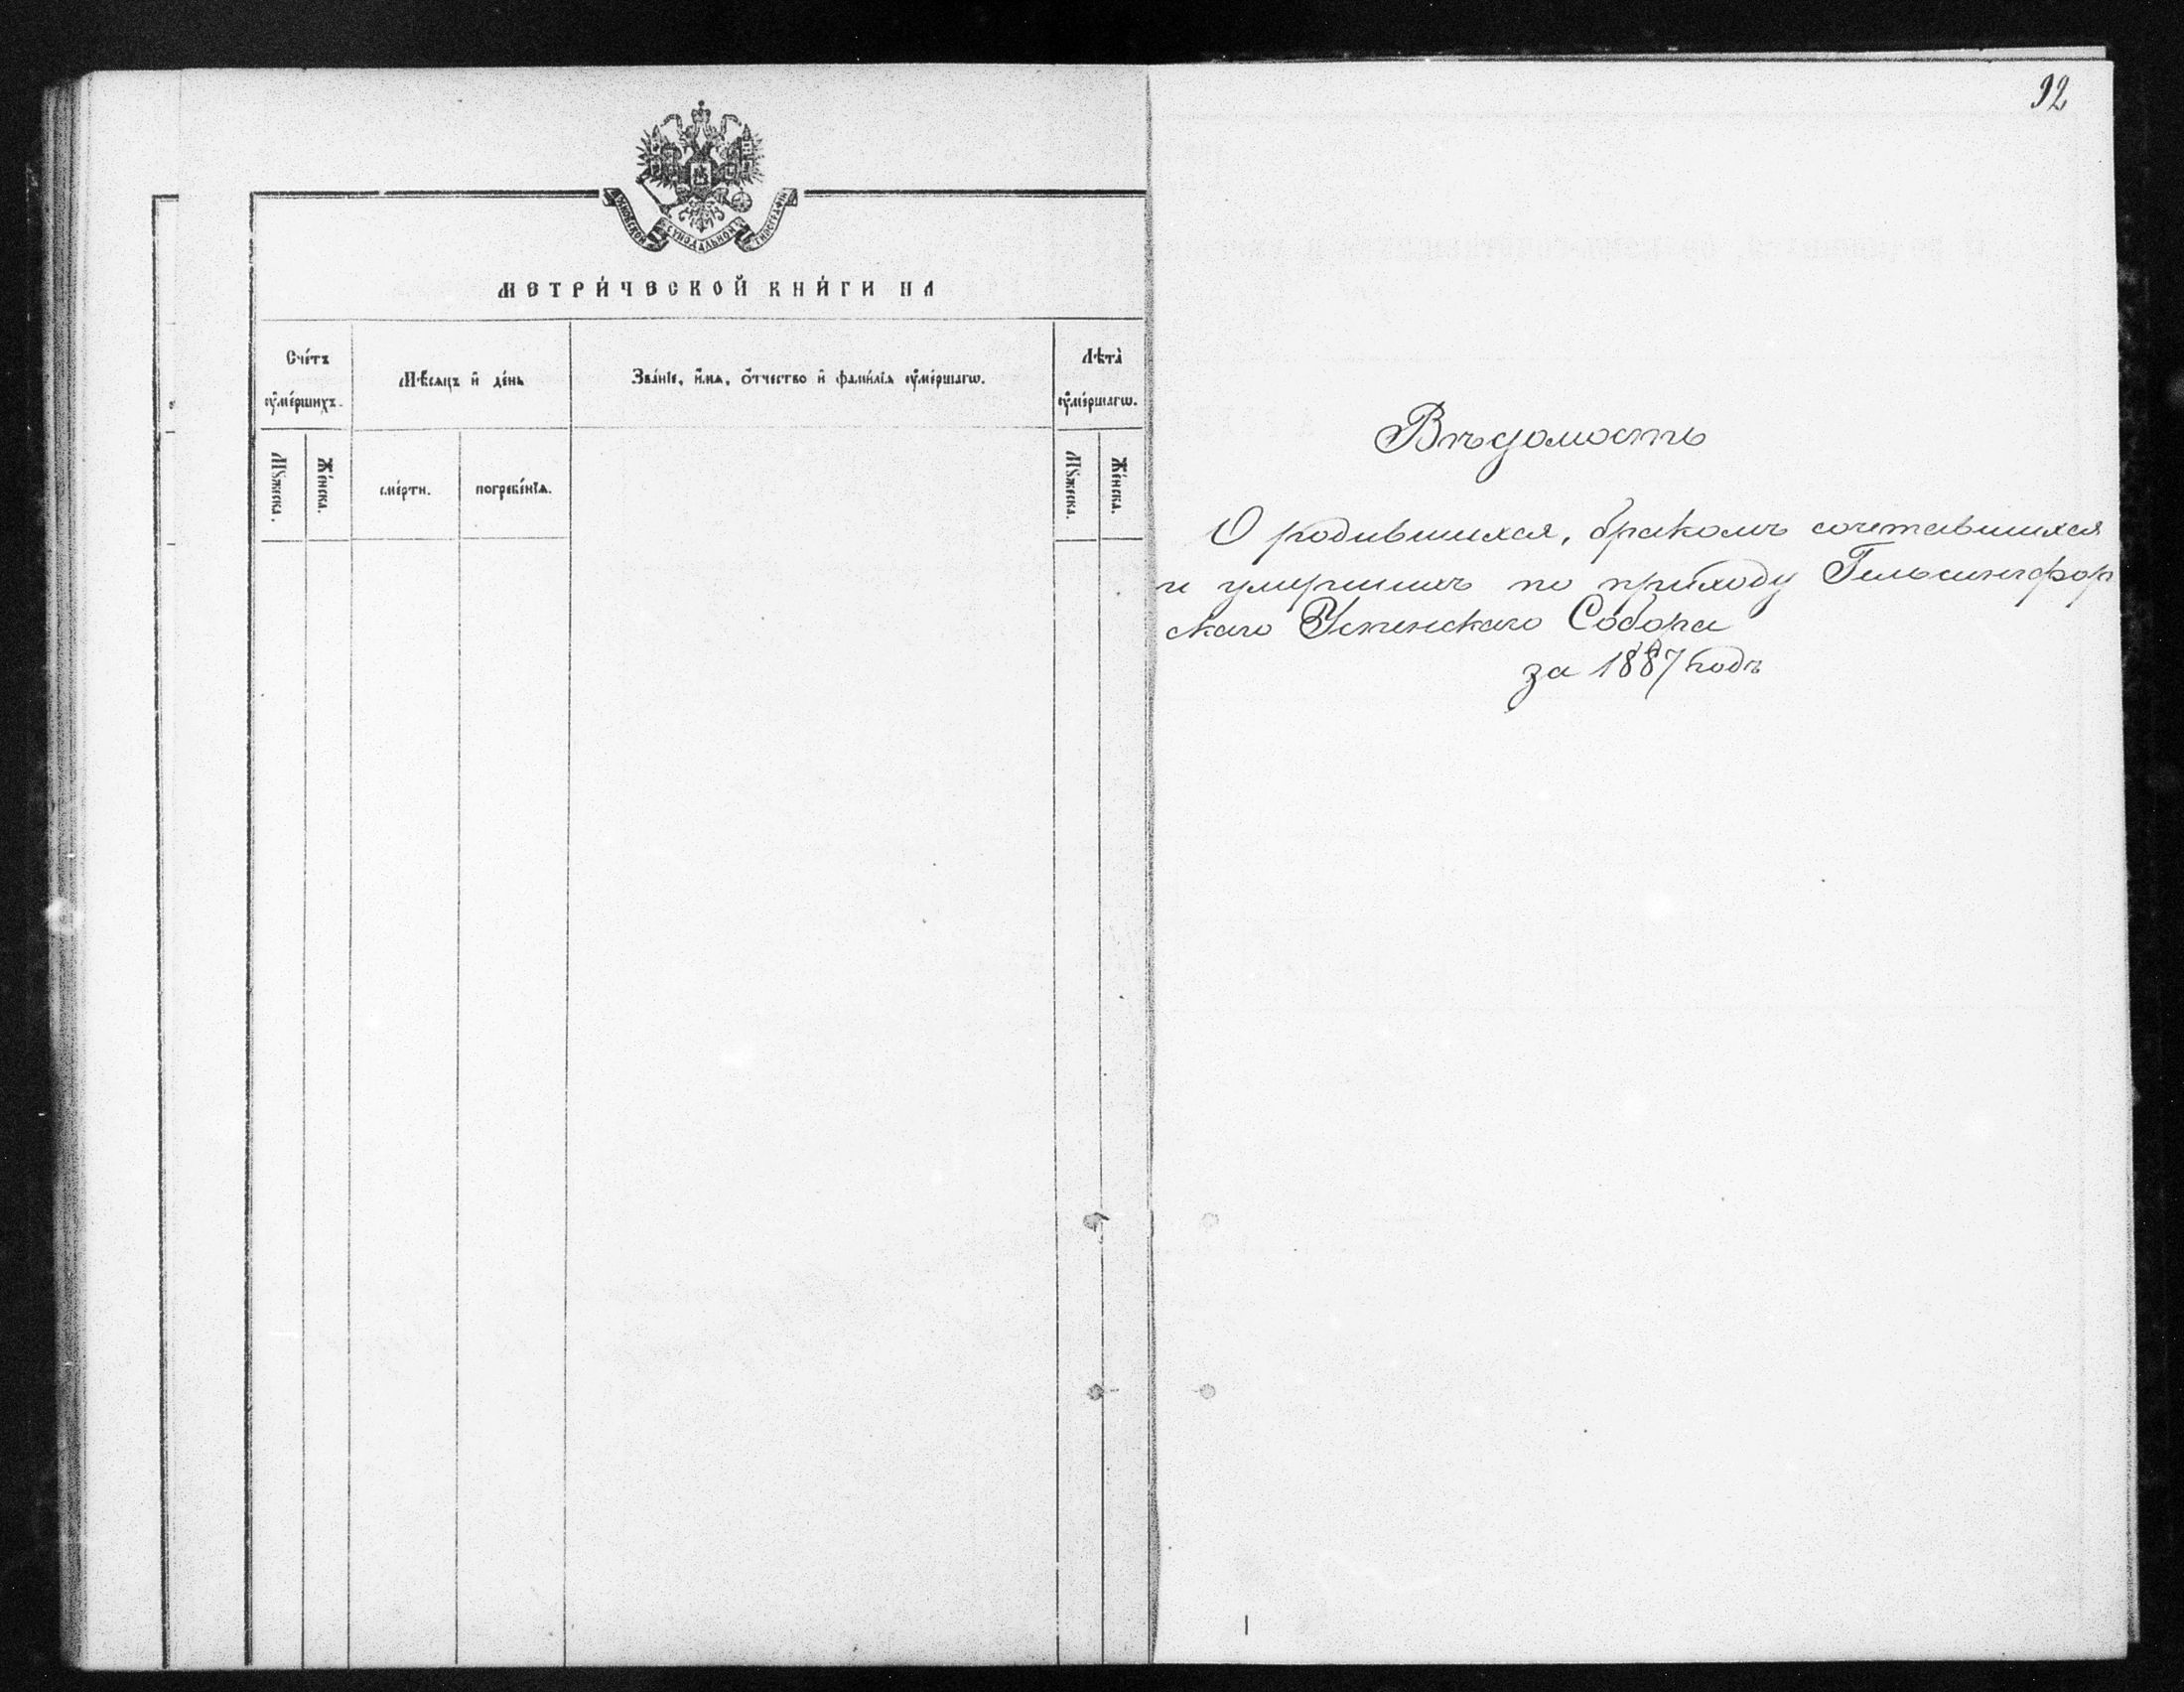 МОСКОВСКОЙ СѴНОДАЛЬНОЙ ТИПОГРАФІИ
МЕТРИ́ЧЕСКОЙ КНИ́ГИ НА
Сче́тъ ᲂу҆ме́ршихъ.
Мѣ́сяцъ и҆ де́нь
Зва́нїе, и҆́мѧ, ѻ҆́тчество и҆ фами́лїѧ ᲂу҆ме́ршагѡ.
Лѣта̀ ᲂу҆ме́ршагѡ.
Мꙋ́жеска.
Же́нска.
сме́рти.
погребе́нїѧ.
Мꙋ́жеска.
Же́нска.
92
Вѣдомость
О родившихся, бракомъ сочетавшихся
и умершихъ по приходу Гельсингфор
скаго Успенскаго Собора
за 1887 годъ